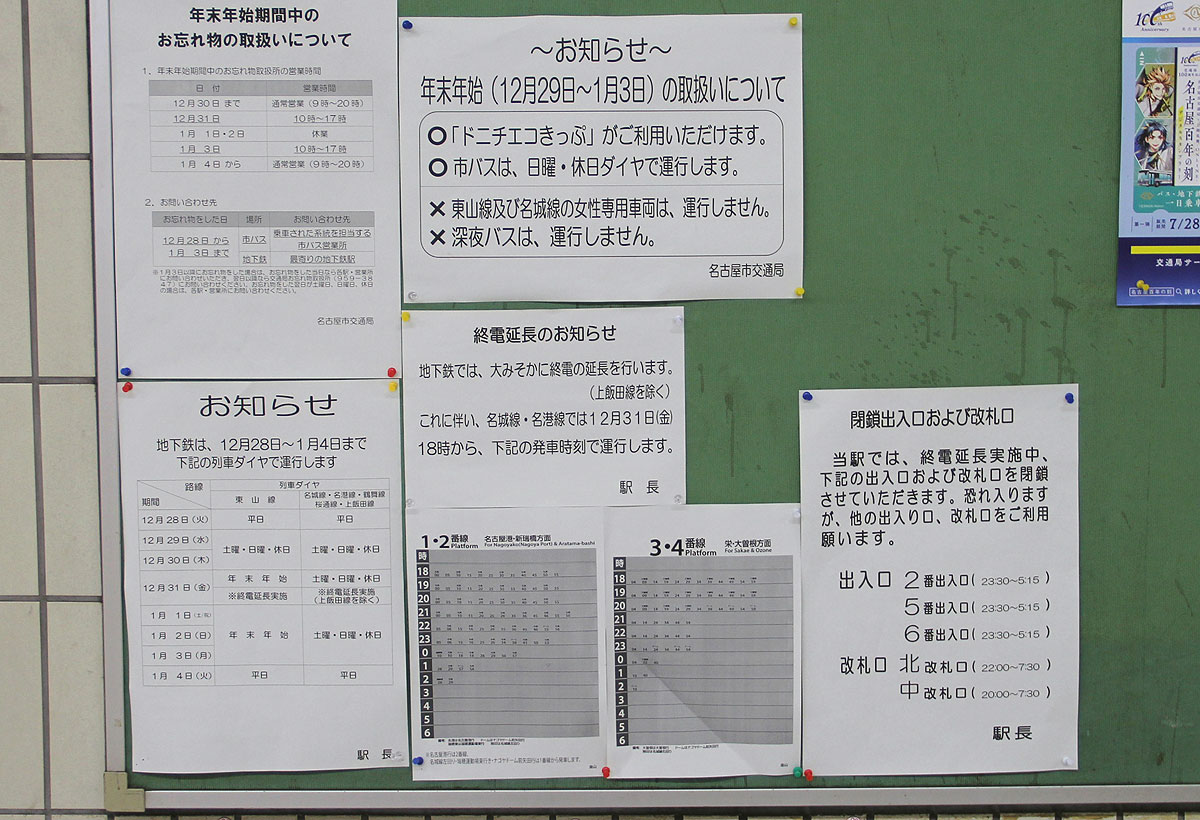 年末年始期間中の
お忘れ物の取扱いについて
1．年末年始期間中のお忘れ物取扱所の営業時間
日 付 営業時間
12月30日 まで 通常営業（9時～20時）
12月31日 10時～17時
1月 1日・2日 休業
1月 3日 10時～17時
1月 4日 から 通常営業（9時～20時）
2．お問い合わせ先
お忘れ物をした日 場所 お問い合わせ先
12月28日 から
1月 3日 まで
市バス 乗車された系統を担当する
市バス営業所
地下鉄 最寄りの地下鉄駅
名古屋市交通局
～お知らせ～
年末年始（12月29日～1月3日）の取扱いについて
○「ドニチエコきっぷ」がご利用いただけます。
○ 市バスは、日曜・休日ダイヤで運行します。
× 東山線及び名城線の女性専用車両は、運行しません。
× 深夜バスは、運行しません。
名古屋市交通局
終電延長のお知らせ
地下鉄では、大みそかに終電の延長を行います。
（上飯田線を除く）
これに伴い、名城線・名港線では12月31日(金)
18時から、下記の発車時刻で運行します。
駅 長
お知らせ
地下鉄は、12月28日～1月4日まで
下記の列車ダイヤで運行します
路線
期間
列車ダイヤ
東 山 線
名城線・名港線・鶴舞線
桜通線・上飯田線
12月28日（火） 平日 平日
12月29日（水）
12月30日（木）
土曜・日曜・休日 土曜・日曜・休日
12月31日（金） 年 末 年 始 土曜・日曜・休日
※終電延長実施 ※終電延長実施
（上飯田線を除く）
1月 1日（土・祝）
1月 2日（日） 年 末 年 始 土曜・日曜・休日
1月 3日（月）
1月 4日（火） 平日 平日
駅 長
1・2番線 Platform
名古屋港・新瑞橋方面
For Nagoyako(Nagoya Port) & Aratama-bashi
時
18
19
20
21
22
23
0
1
2
3
4
5
6
3・4番線 Platform
栄・大曽根方面
For Sakae & Ozone
時
18
19
20
21
22
23
0
1
2
3
4
5
6
閉鎖出入口および改札口
当駅では、終電延長実施中、
下記の出入口および改札口を閉鎖
させていただきます。恐れ入ります
が、他の出入り口、改札口をご利用
願います。
出入口 2番出入口( 23:30～5:15 )
5番出入口( 23:30～5:15 )
6番出入口( 23:30～5:15 )
改札口 北改札口( 22:00～7:30 )
中改札口( 20:00～7:30 )
駅長
100th
Anniversary
名古屋百年の刻
バス・地下鉄
一日乗車
7/28
交通局サー
名古屋百年の刻